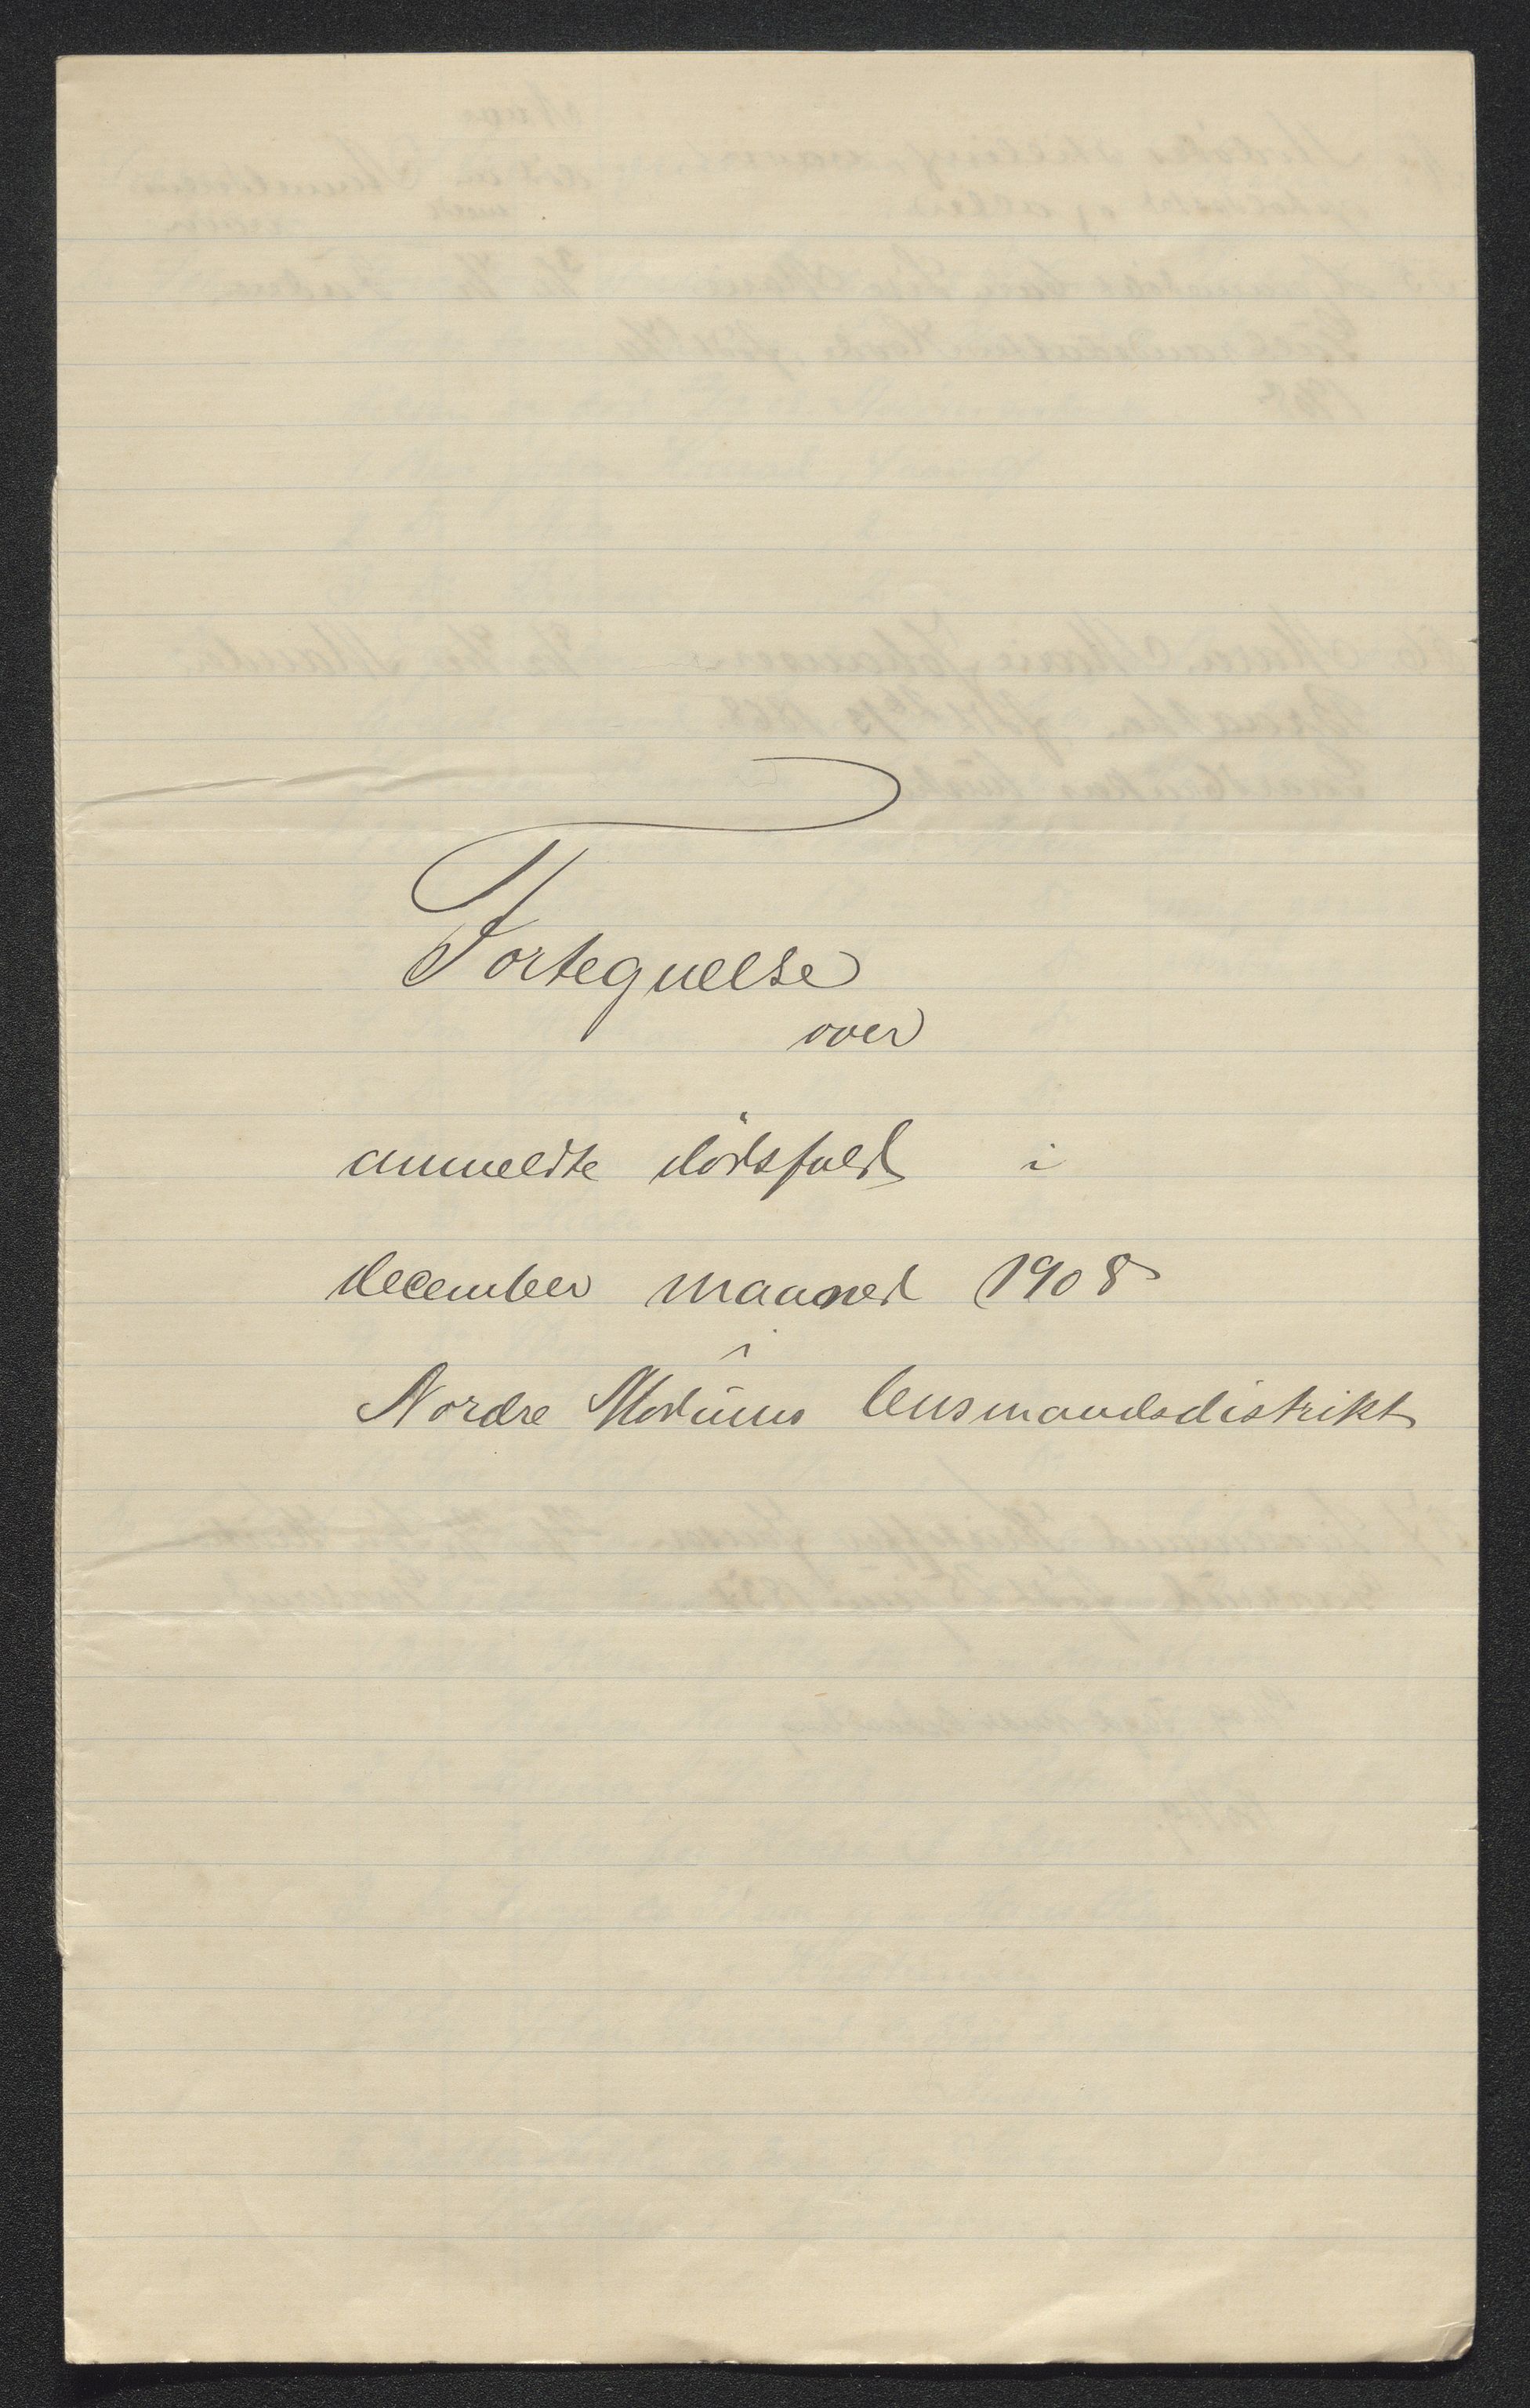 Fortegnelse
over
anmeldte dödsfald i
december maaned 1908
i
Nordre Modums lensmandsdistrikt